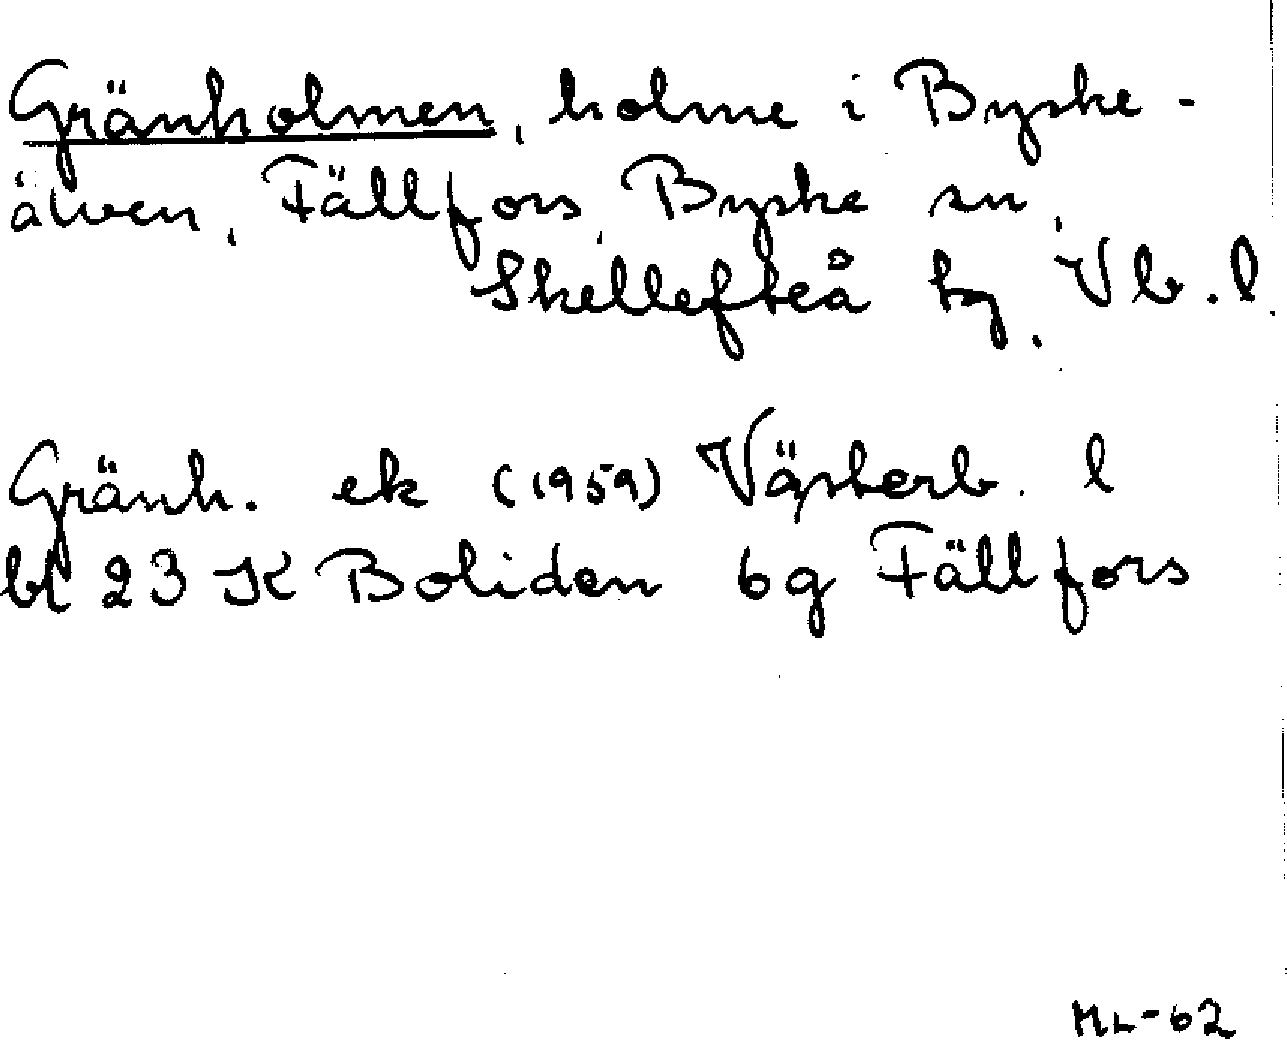 Gränholmen, holme i Byske-
älven, Fällfors, Byske sn,
Skellefteå tg, Vb. l.
Gränh. ek (1959) Västerb. l
bl 23 K Boliden 6g Fällfors
ML-62